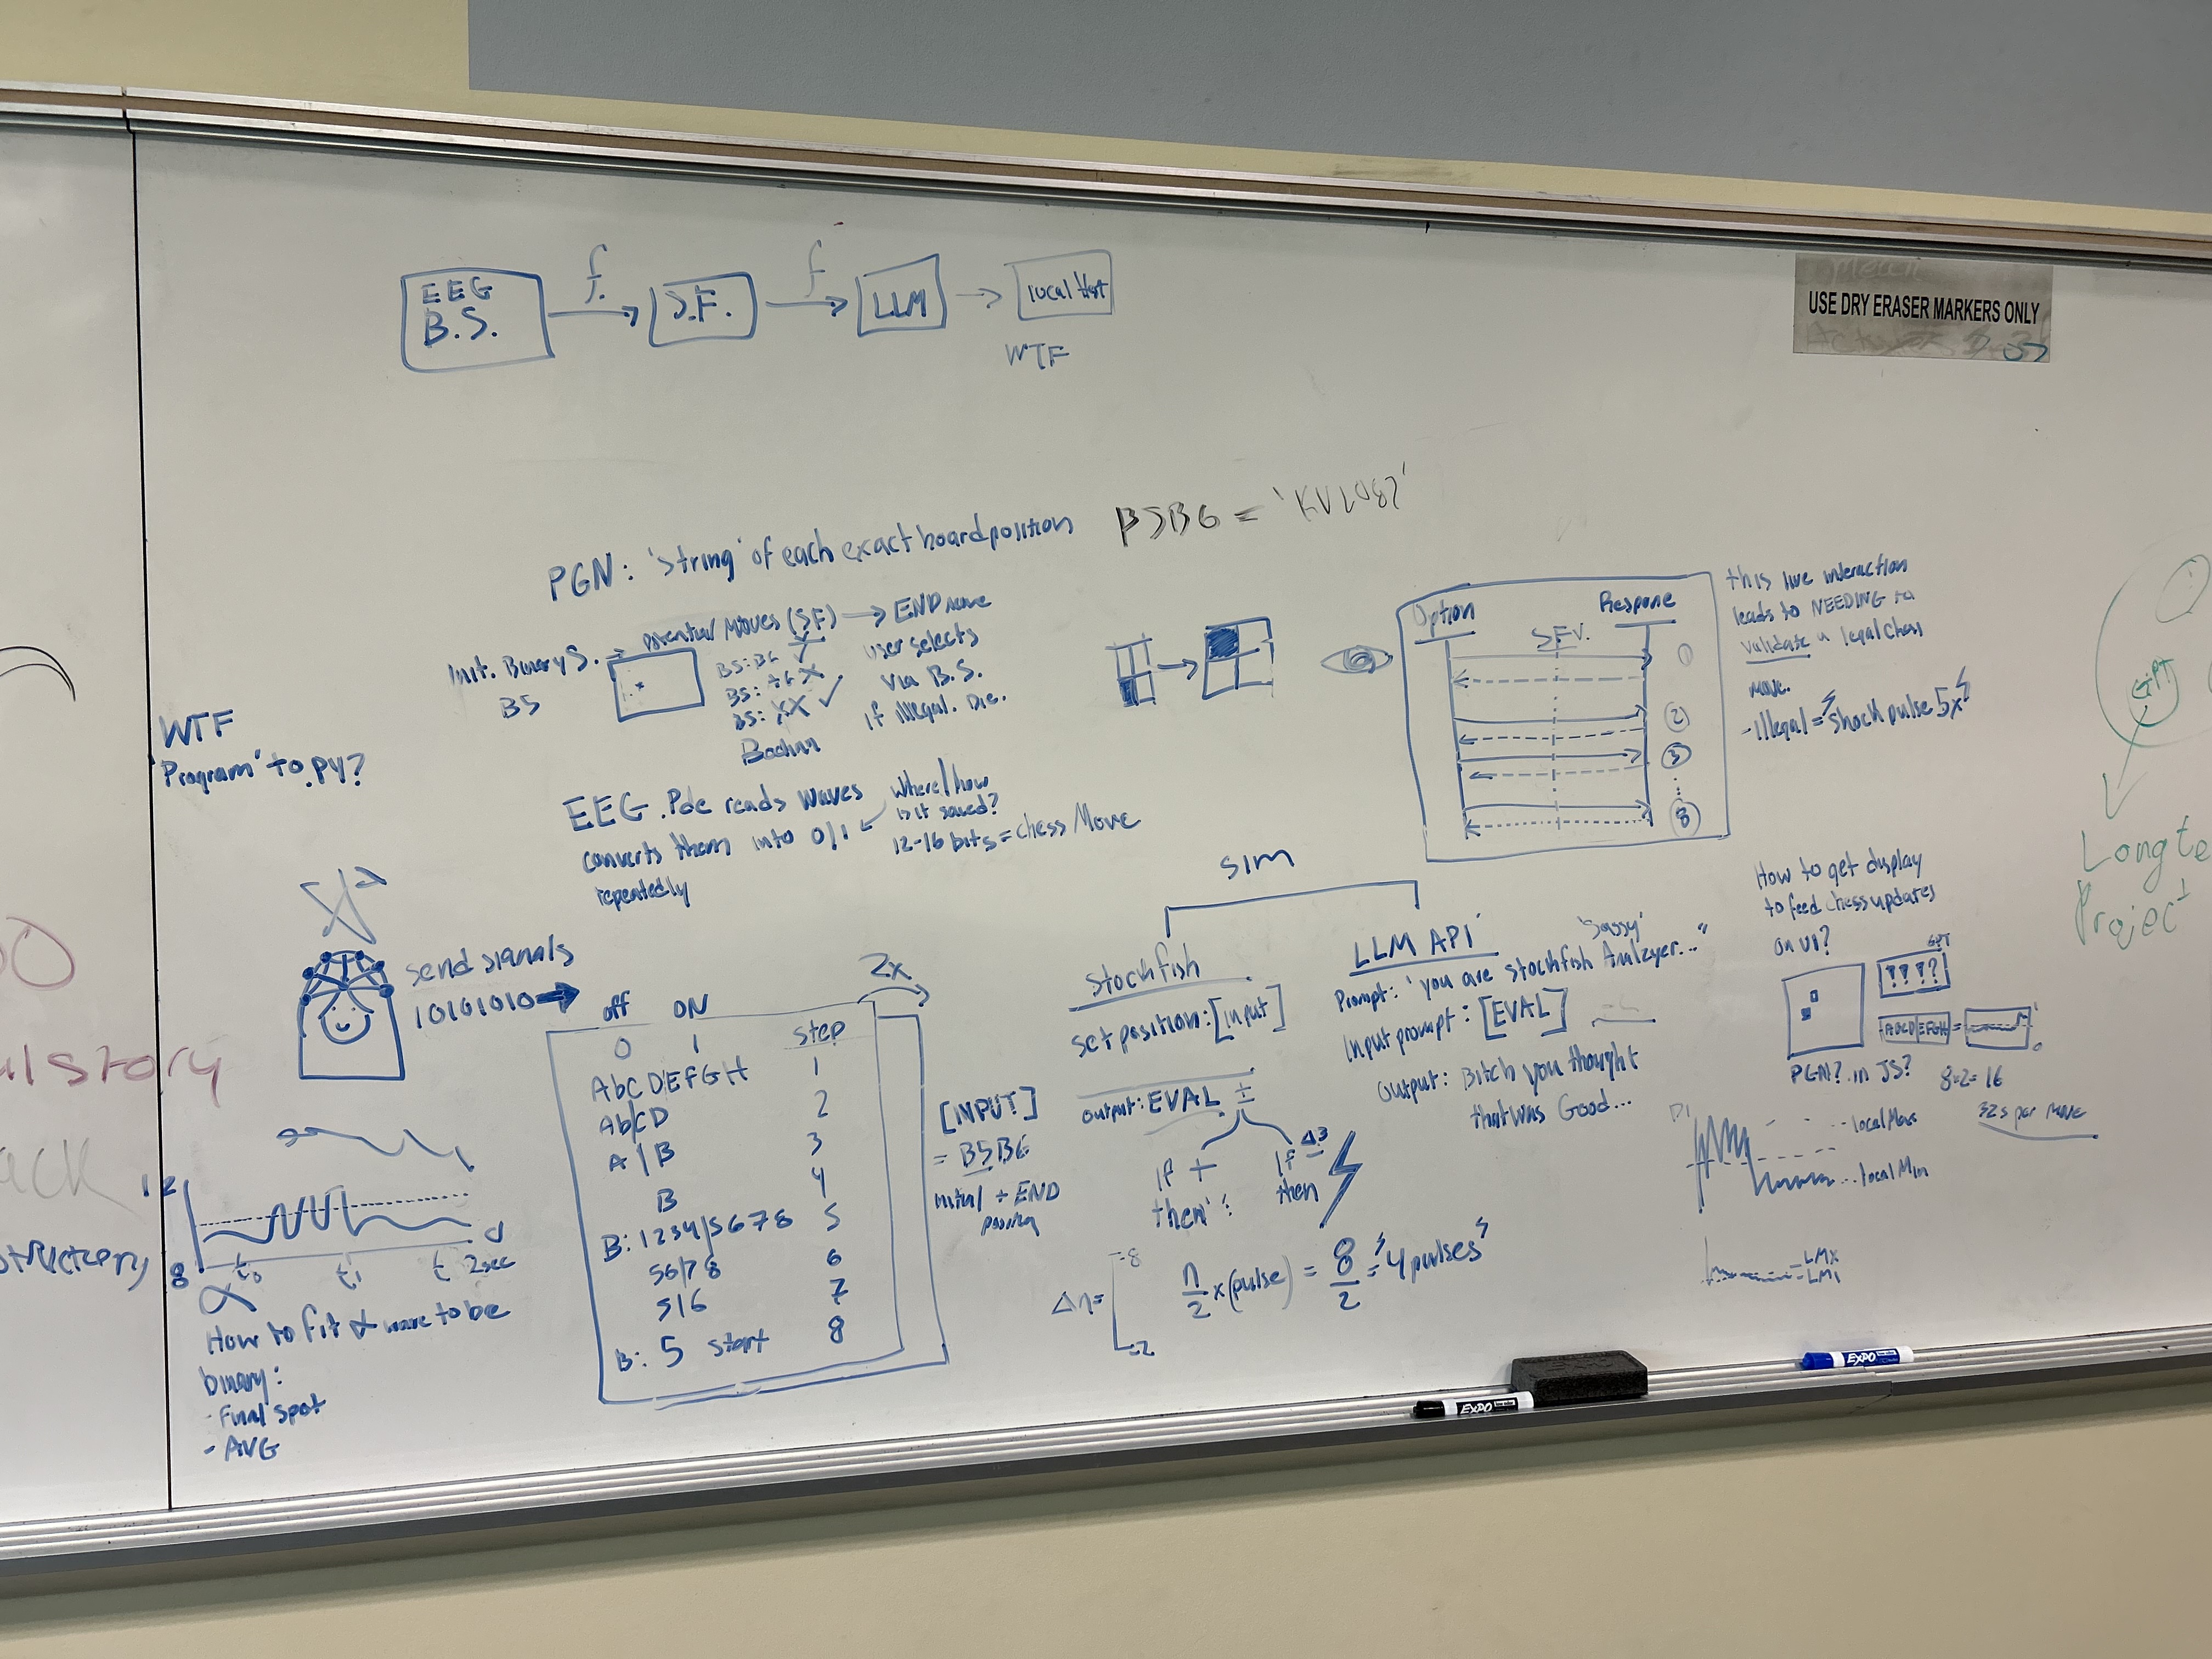 EEG
B.S.
f
S.F.
f
LLM
local Host
WTF
USE DRY ERASER MARKERS ONLY
PGN: 'string' of each exact board position
B5B6 =
Init. Binary S.
B5
potential Moves (SF) → END move
B5:B6 ✓
B5: A6 X
B5: XX ✓
Boolean
user selects
via B.S.
if illegal. Die.
Option
Response
SFV.
1
2
3
8
this live interaction
leads to NEEDING to
validate a legal chess
move.
- illegal = shock pulse 5x
WTF
Program' to .py?
EEG .Pde reads waves
converts them into 0/1
repeatedly
where/how
is it saved?
12-16 bits = chess Move
GPT
Long te
Project
send signals
10101010
2x
off ON
0 1 step
AbCD|EFGH 1
Ab|CD 2
A|B 3
B 4
B: 1234|5678 5
56|78 6
5|6 7
B: 5 start 8
[INPUT]
= B5B6
initial + END
position
sim
stockfish
set position: [input]
output: EVAL ±
if +
then
if Δ3
then
Δn= -8
-2
n/2 x (pulse) = 8/2 = '4 pulses'
LLM API
'sassy'
Prompt: 'you are stockfish Analzyer..."
Input prompt: [EVAL]
output: Bitch you thought
that was Good...
How to get display
to feed chess updates
on UI?
GPT
????
ABCD|EFGH =
PGN? in JS?
8x2= 16
32s per move
local Max
local Min
LMX
LMI
ulstory
ack
12
8
t0 t1 t 2sec
α
How to fit α wave to be
binary:
- Final spot
- AVG
EXPO
EXPO